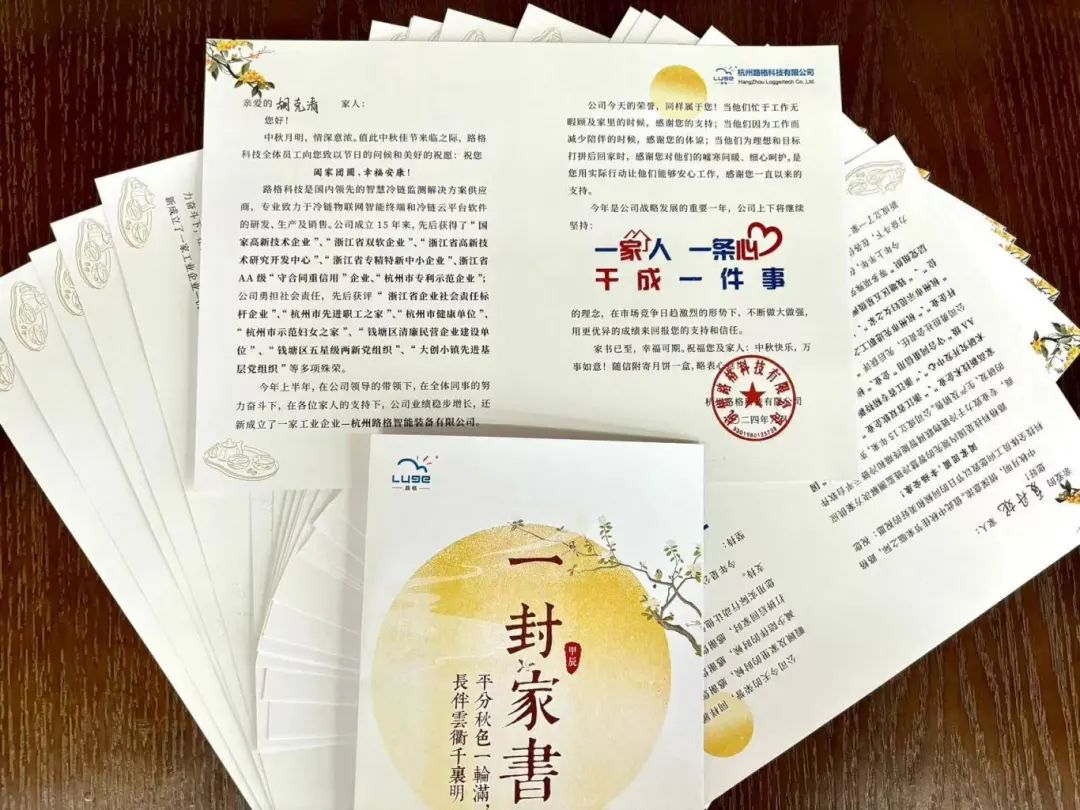 亲爱的 家人：
您好！
中秋月明，情深意浓。值此中秋佳节来临之际，路格
科技全体员工向您致以节日的问候和美好的祝愿：祝您
阖家团圆，幸福安康！
路格科技是国内领先的智慧冷链监测解决方案供应
商，专业致力于冷链物联网智能终端和冷链云平台软件
的研发、生产及销售。公司成立 15 年来，先后获得了“国
家高新技术企业”、“浙江省双软企业”、“浙江省高新技
术研究开发中心”、“浙江省专精特新中小企业”、浙江省
AA 级“守合同重信用”企业、“杭州市专利示范企业”；
公司勇担社会责任，先后获评“浙江省企业社会责任标
杆企业”、“杭州市先进职工之家”、“杭州市健康单位”、
“杭州市示范妇女之家”、“钱塘区清廉民营企业建设单
位”、“钱塘区五星级两新党组织”、“大创小镇先进基
层党组织”等多项殊荣。
今年上半年，在公司领导的带领下，在全体同事的努
力奋斗下，在各位家人的支持下，公司业绩稳步增长，还
新成立了一家工业企业—杭州路格智能装备有限公司。
Luge
路格
杭州路格科技有限公司
HangZhou Loggertech Co.,Ltd.
公司今天的荣誉，同样属于您！当他们忙于工作无
暇顾及家里的时候，感谢您的支持；当他们因为工作而
减少陪伴的时候，感谢您的体谅；当他们为理想和目标
打拼后回家时，感谢您对他们的嘘寒问暖、细心呵护。是
您用实际行动让他们能够安心工作，感谢您一直以来的
支持。
今年是公司战略发展的重要一年，公司上下将继续
坚持：
一家人 一条心
干成一件事
的理念，在市场竞争日趋激烈的形势下，不断做大做强，
用更优异的成绩来回报您的支持和信任。
家书已至，幸福可期。祝福您及家人：中秋快乐，万
事如意！随信附寄月饼一盒，略表心意
杭州路格科技有限公司
二〇二四年
杭州路格科技有限公司
Luge
路格
一封家书
甲辰
平分秋色一輪滿，
長伴雲衢千裏明
力奋斗下，在
新成立了一家工业企业
亲爱的 家人：
您好！
中秋月明，情深意浓。值此中秋佳节来临之际，路格
科技全体员工向您致以节日的问候和美好的祝愿：祝您
阖家团圆，幸福安康！
坚持：
今年是公
支持。
您用实际行动让他
打拼后回家时，感谢您
减少陪伴的时候，感谢
暇顾及家里的时候，感谢
公司今天的荣誉，同样